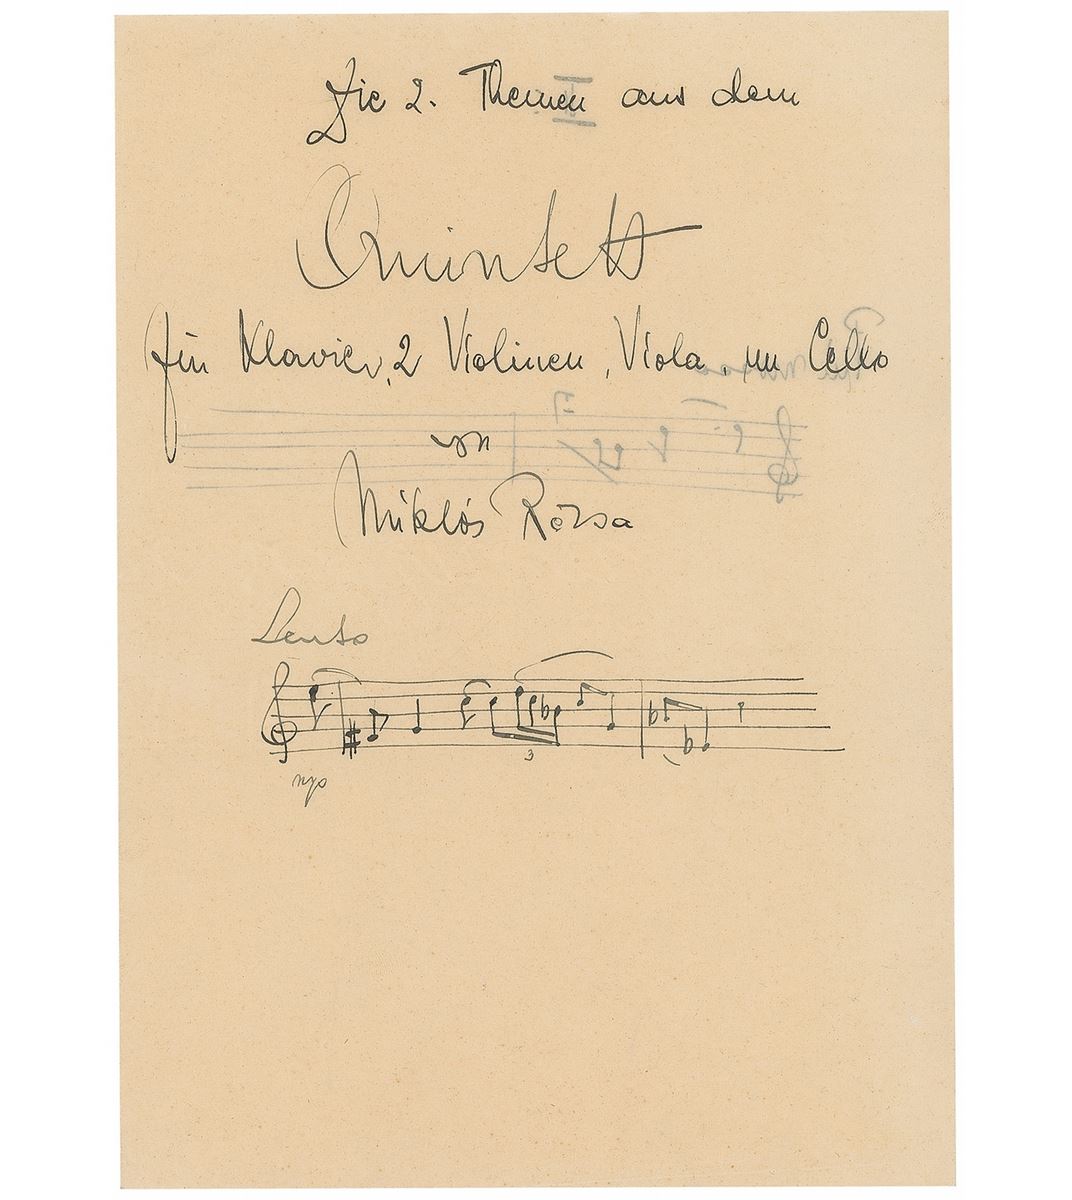 Die 2. Themen aus dem
Quintett
für Klavier, 2 Violinen, Viola, un Cello
von
Miklós Rózsa
Lento
mp
3